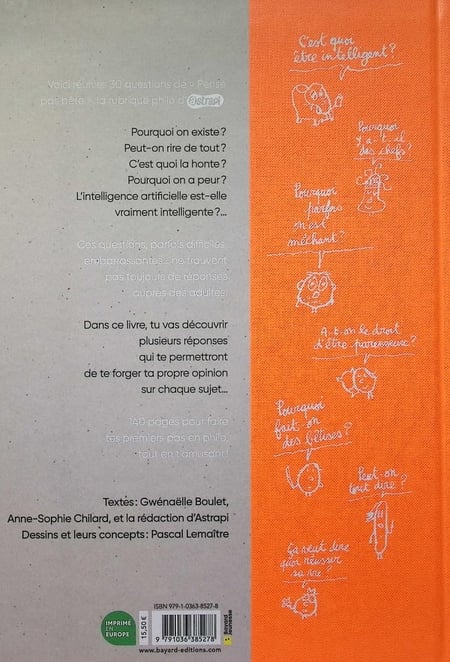 Voici réunies 30 questions de « Pense
pas bête », la rubrique philo d'@strapi
Pourquoi on existe ?
Peut-on rire de tout ?
C'est quoi la honte ?
Pourquoi on a peur ?
L'intelligence artificielle est-elle
vraiment intelligente ?...
Ces questions, parfois difficiles,
embarrassantes... ne trouvent
pas toujours de réponses
auprès des adultes.
Dans ce livre, tu vas découvrir
plusieurs réponses
qui te permettront
de te forger ta propre opinion
sur chaque sujet...
140 pages pour faire
tes premiers pas en philo,
tout en t'amusant!
Textes : Gwénaëlle Boulet,
Anne-Sophie Chilard, et la rédaction d'Astrapi
Dessins et leurs concepts : Pascal Lemaître
IMPRIMÉ
EN
EUROPE
15,50 €
ISBN 979-1-0363-8527-8
9 791036 385278
www.bayard-editions.com
bayard
jeunesse
C'est quoi
être intelligent ?
Pourquoi
y a-t-il
des chefs ?
Pourquoi
parfois
on est
méchant ?
A-t-on le droit
d'être paresseuse ?
Pourquoi
fait-on
des bêtises ?
Peut-on
tout dire ?
Ça veut dire
quoi réussir
sa vie ?